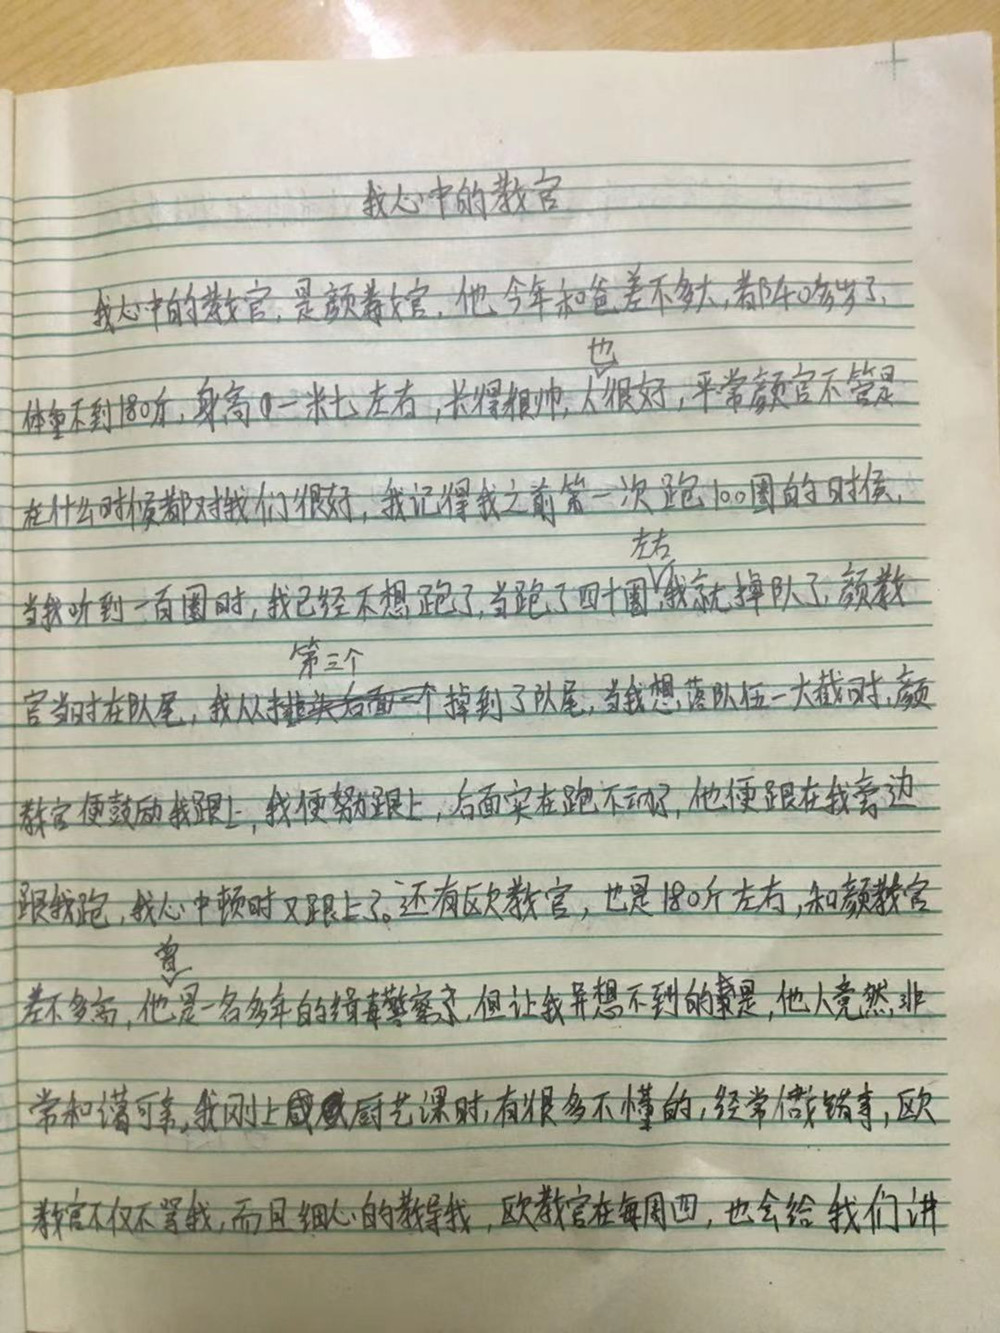 我心中的教官
我心中的教官,是颜教官,他今年和爸差不多大,都40多岁了,
也
体重不到180斤,身高一米七左右,长得很帅,人很好,平常颜官不管是
在什么时候都对我们很好,我记得我之前第一次跑100圈的时候,
左右
当我听到一百圈时,我已经不想跑了,当跑了四十圈,我就掉队了,颜教
第三个
官当时在队尾,我从排头后面一个掉到了队尾,当我想落队伍一大截时,颜
教官便鼓励我跟上,我便努力跟上,后面实在跑不动了,他便跟在我旁边
跟我跑,我心中顿时又跟上了。还有欧教官,也是180斤左右,和颜教官
曾
差不多高,他是一名多年的缉毒警察了,但让我异想不到的是,他人竟然非
常和谐可亲,我刚上厨艺课时,有很多不懂的,经常做错事,欧
教官不仅不骂我,而且细心的教导我,欧教官在每周四,也会给我们讲